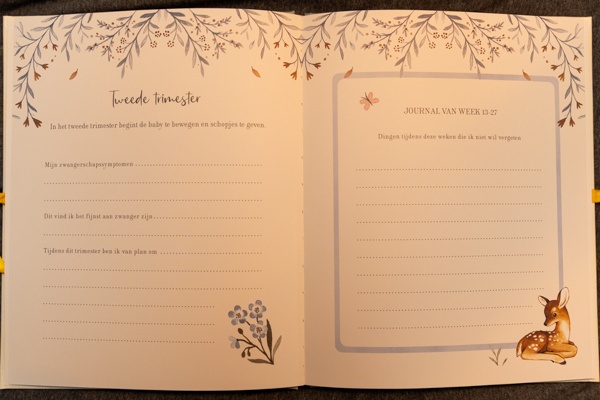 Tweede trimester
In het tweede trimester begint de baby te bewegen en schopjes te geven.
Mijn zwangerschapssymptomen
Dit vind ik het fijnst aan zwanger zijn
Tijdens dit trimester ben ik van plan om
JOURNAL VAN WEEK 13-27
Dingen tijdens deze weken die ik niet wil vergeten